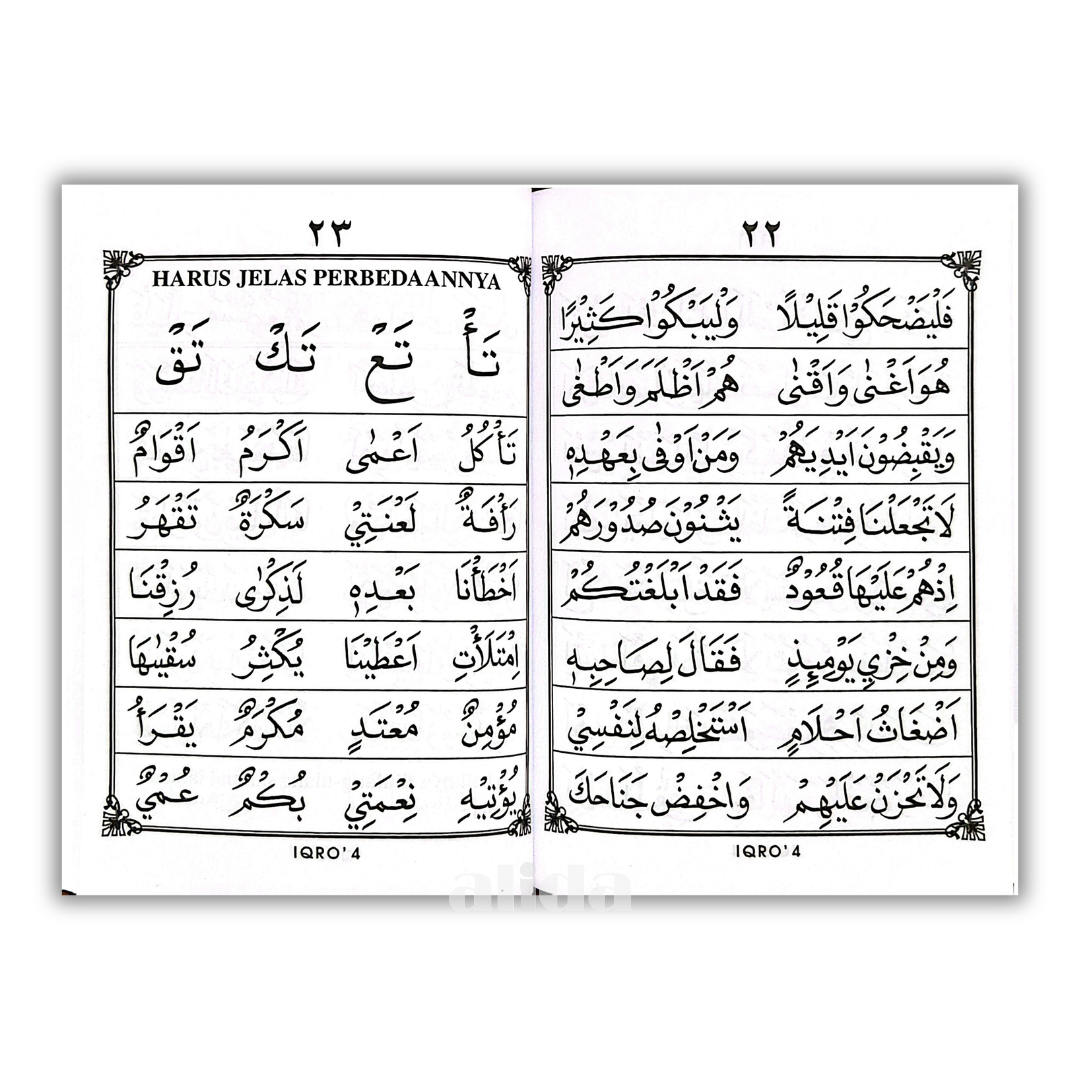 ٢٢
فَلْيَضْحَكُوْا قَلِيْلًا وَلْيَبْكُوْا كَثِيْرًا
هُوَ اَغْنٰى وَاَقْنٰى هُمْ اَظْلَمَ وَاَطْغٰى
وَيَقْبِضُوْنَ اَيْدِيَهُمْ وَمَنْ اَوْفٰى بِعَهْدِهٖ
لَا تَجْعَلْنَا فِتْنَةً يَثْنُوْنَ صُدُوْرَهُمْ
اِذْهُمْ عَلَيْهَا قُعُوْدٌ فَقَدْ اَبْلَغْتُكُمْ
وَمِنْ خِزْيِ يَوْمِئِذٍ فَقَالَ لِصَاحِبِهٖ
اَضْغَاثُ اَحْلَامٍ اَسْتَخْلِصْهُ لِنَفْسِيْ
وَلَا تَحْزَنْ عَلَيْهِمْ وَاخْفِضْ جَنَاحَكَ
IQRO' 4
٢٣
HARUS JELAS PERBEDAANNYA
تَأْ تَعْ تَكْ تَقْ
تَأْكُلُ اَعْمٰى اَكْرَمُ اَقْوَامٌ
رَأْفَةٌ لَعْنَتِيْ سَكْرَةٌ تَقْهَرُ
اَخْطَأْنَا بَعْدِهٖ لَذِكْرٰى رُزِقْنَا
اِمْتَلَأْتِ اَعْطَيْنَا يُكْثِرُ سُقْيٰهَا
مُؤْمِنٌ مُعْتَدٍ مُكْرَمٌ يَقْرَأُ
يُؤْتِيْهِ نِعْمَتِيْ بُكْمٌ عُمْيٌ
IQRO' 4
alida